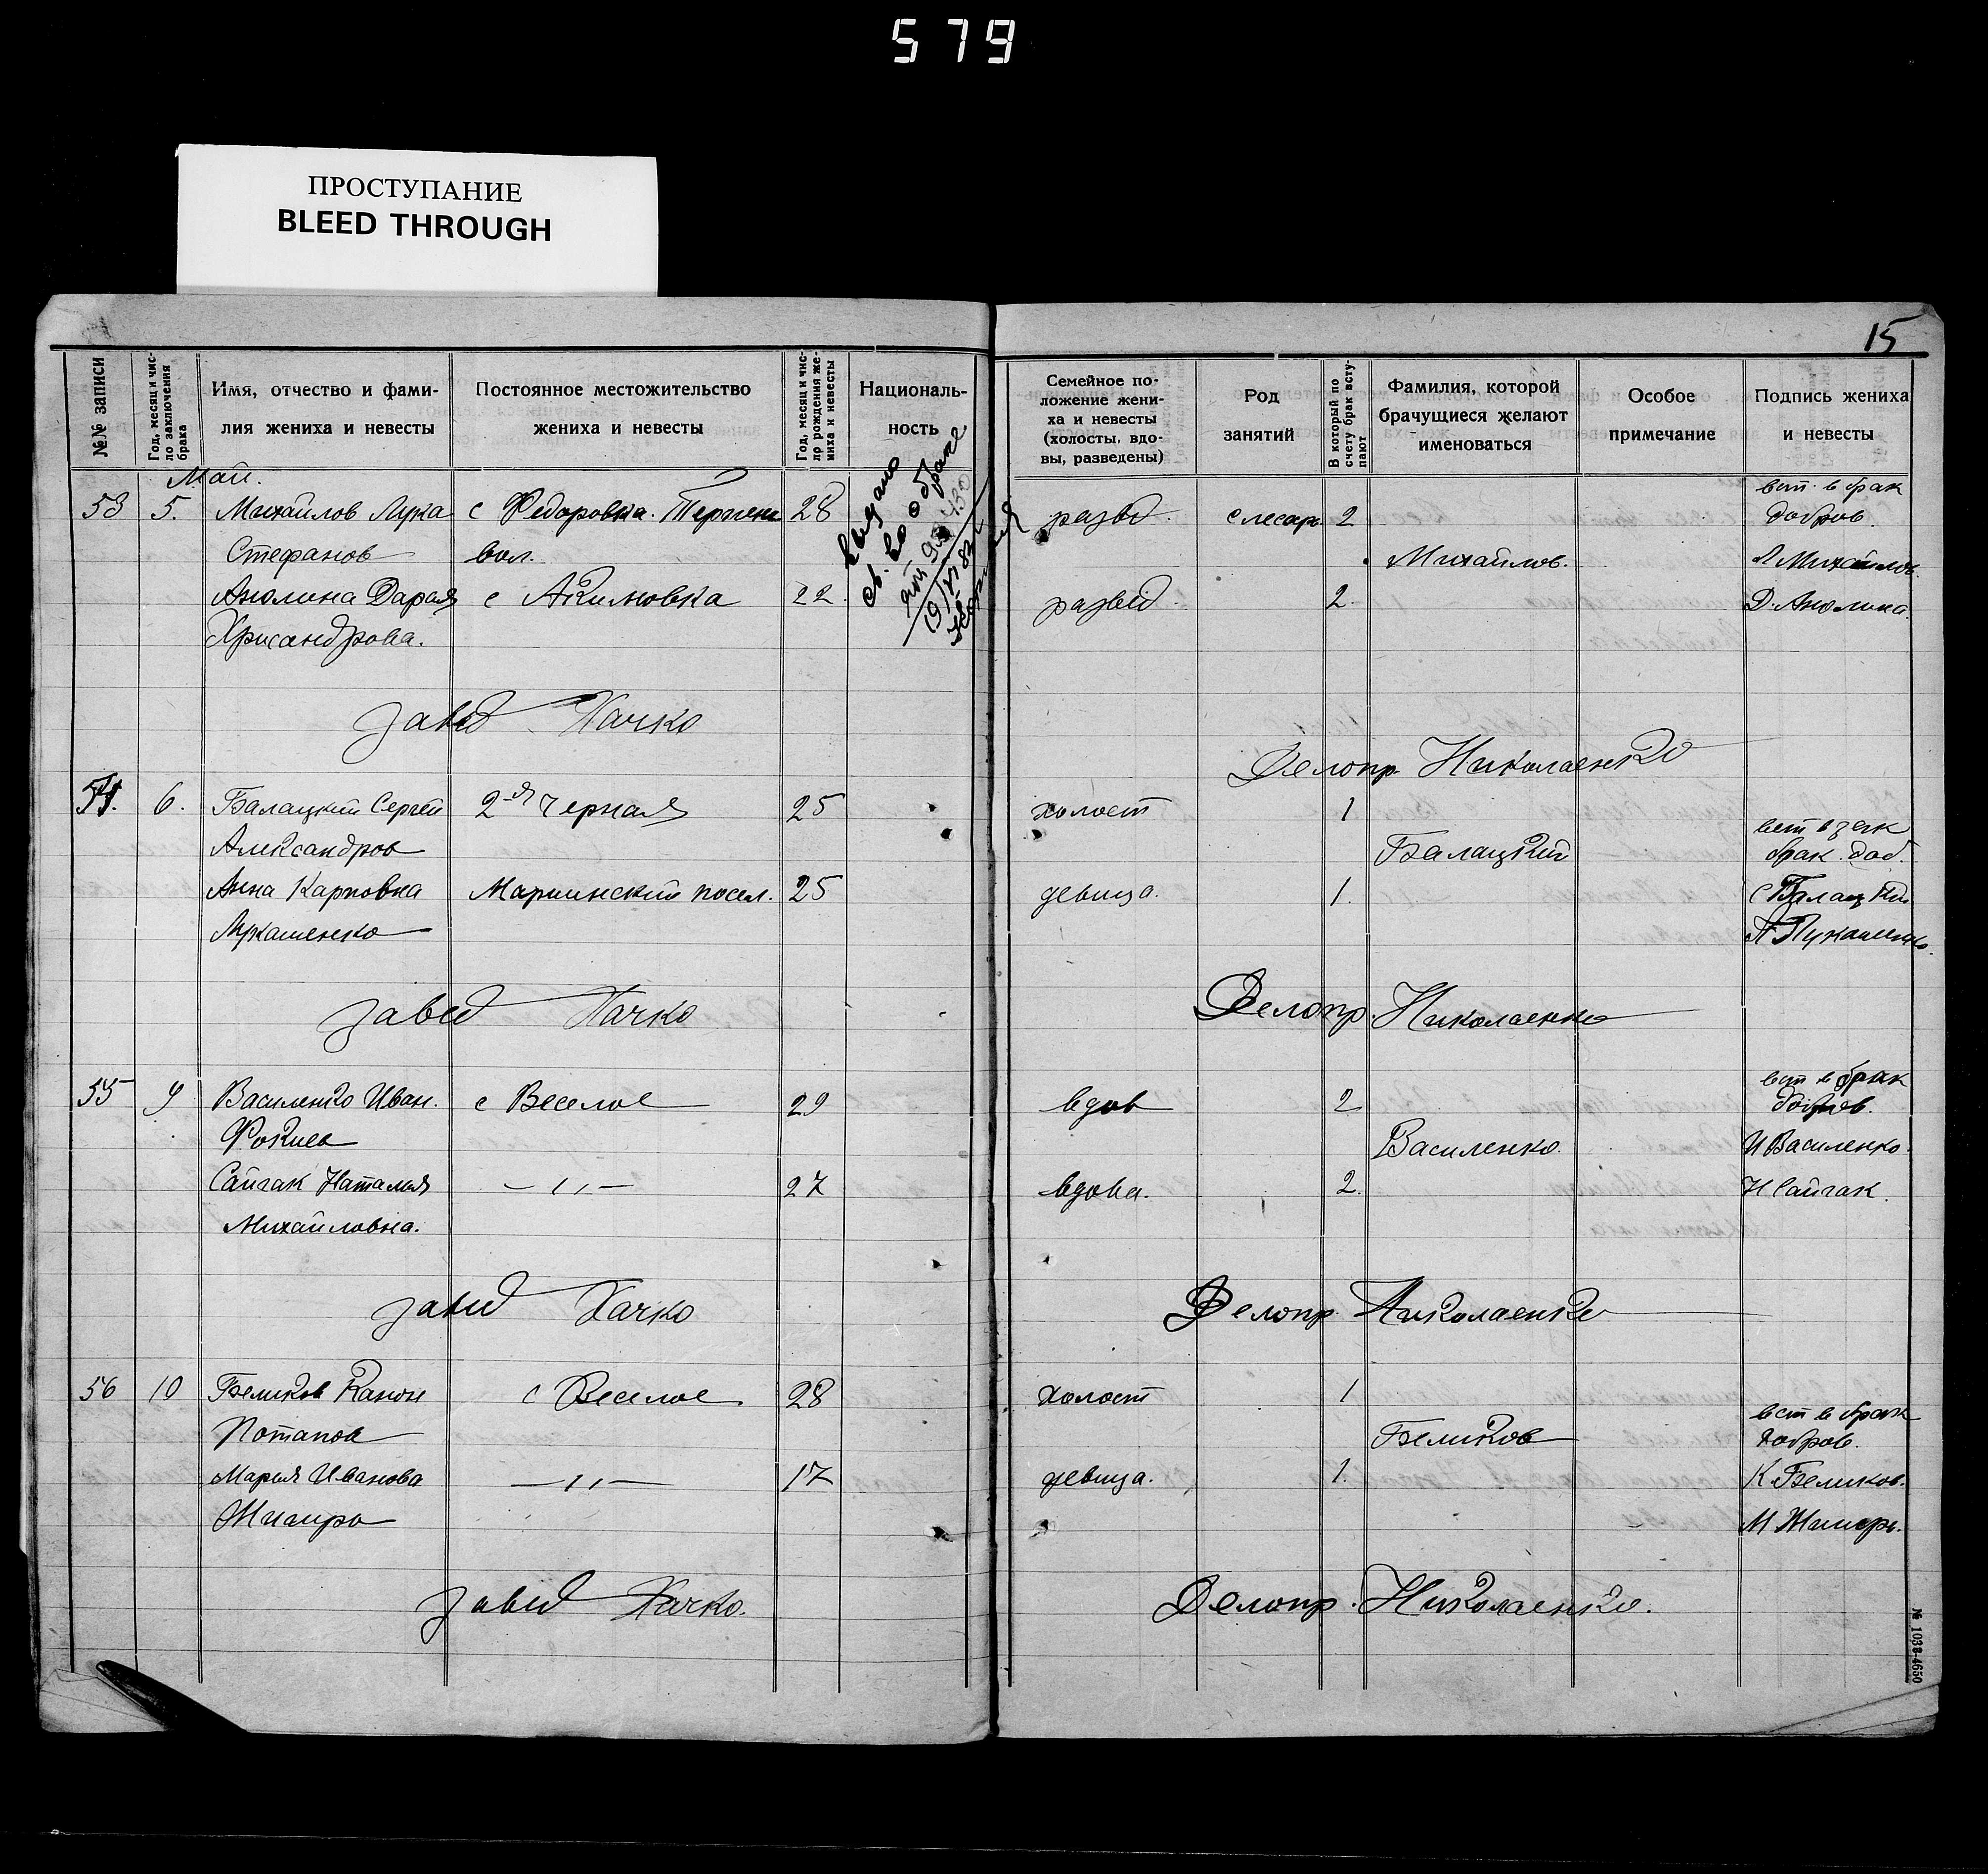 579
ПРОСТУПАНИЕ
BLEED THROUGH
15
№№ записи
Год, месяц и чис-
ло заключения
брака
Имя, отчество и фами-
лия жениха и невесты
Постоянное местожительство
жениха и невесты
Год, месяц и чис-
ло рождения же-
ниха и невесты
Националь-
ность
Семейное по-
ложение жени-
ха и невесты
(холосты, вдо-
вы, разведены)
Род
занятий
В который по
счету брак всту-
пают
Фамилия, которой
брачущиеся желают
именоваться
Особое
примечание
Подпись жениха
и невесты
Май.
выдано
св. во о браке
53 5. Михайлов Лука с Федоровка. 28 развд. слесарь 2 вст. в брак добров.
Стефанов вол. Михайлов. Л Михайлов
Анолина Дарья с Акимовка 22. развед. 2. Д. Анолина.
Хрисандрова.
Завед Хачко
Делопр Николаенко
54. 6. Балацкий Сергей 2-я Черная 25 холост 1
Александров Балацкий вст в зак брак. доб.
Анна Карповна Мариинский посел. 25 девица. 1. С Балацкий
Лукашенко Лукашенко
Завед Хачко
Делопр. Николаенко
55 9 Василенко Иван. с Веселое 29 вдов 2 вст в брак добров.
Фокиев Василенко. И Василенко.
Сайгак Наталья —〃— 27 вдова. 2. Н Сайгак.
Михайловна.
Завед Хачко
Делопр. Николаенко
56 10 Беликов Канон с Веселое 28 холост 1
Потапов Беликов вст в брак добров.
Мария Иванова —〃— 17 девица. 1. К. Беликов.
Завед Хачко.
Делопр. Николаенко.
№ 1038-4650